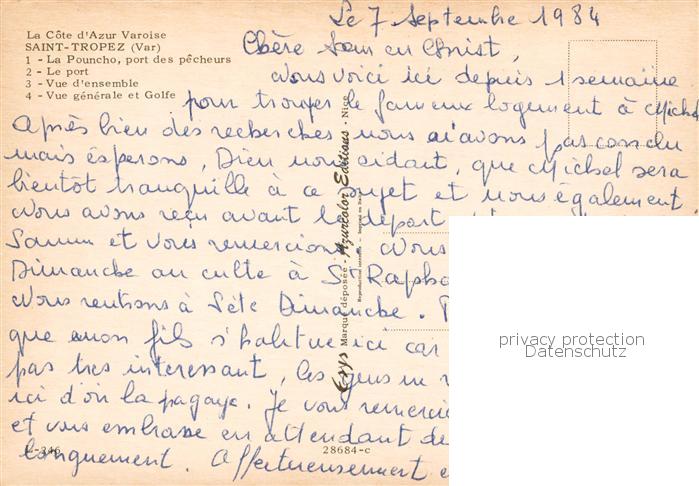 Le 7 Septembre 1984
La Côte d'Azur Varoise
SAINT-TROPEZ (Var)
1 - La Pouncho, port des pêcheurs
2 - Le port
3 - Vue d'ensemble
4 - Vue générale et Golfe
Chère Sœur en Christ,
Nous voici ici depuis 1 semaine
pour trouver le fameux logement à Michel
Après bien des recherches nous n'avons pas conclu
mais espérons, Dieu nous aidant, que Michel sera
bientôt tranquille à ce sujet et nous également
Nous avons reçu avant le départ
et vous remercions Nous
Dimanche au culte à St Rapha
Nous rentrons à Sète Dimanche.
que mon fils s'habitue ici car
pas très intéressant, les gens
ici d'où la pagaye. Je vous remercie
et vous embrasse en attendant de
longuement. Affectueusement
Erys Marque déposée - Azurcolor Editions - Nice
28684-c
privacy protection
Datenschutz